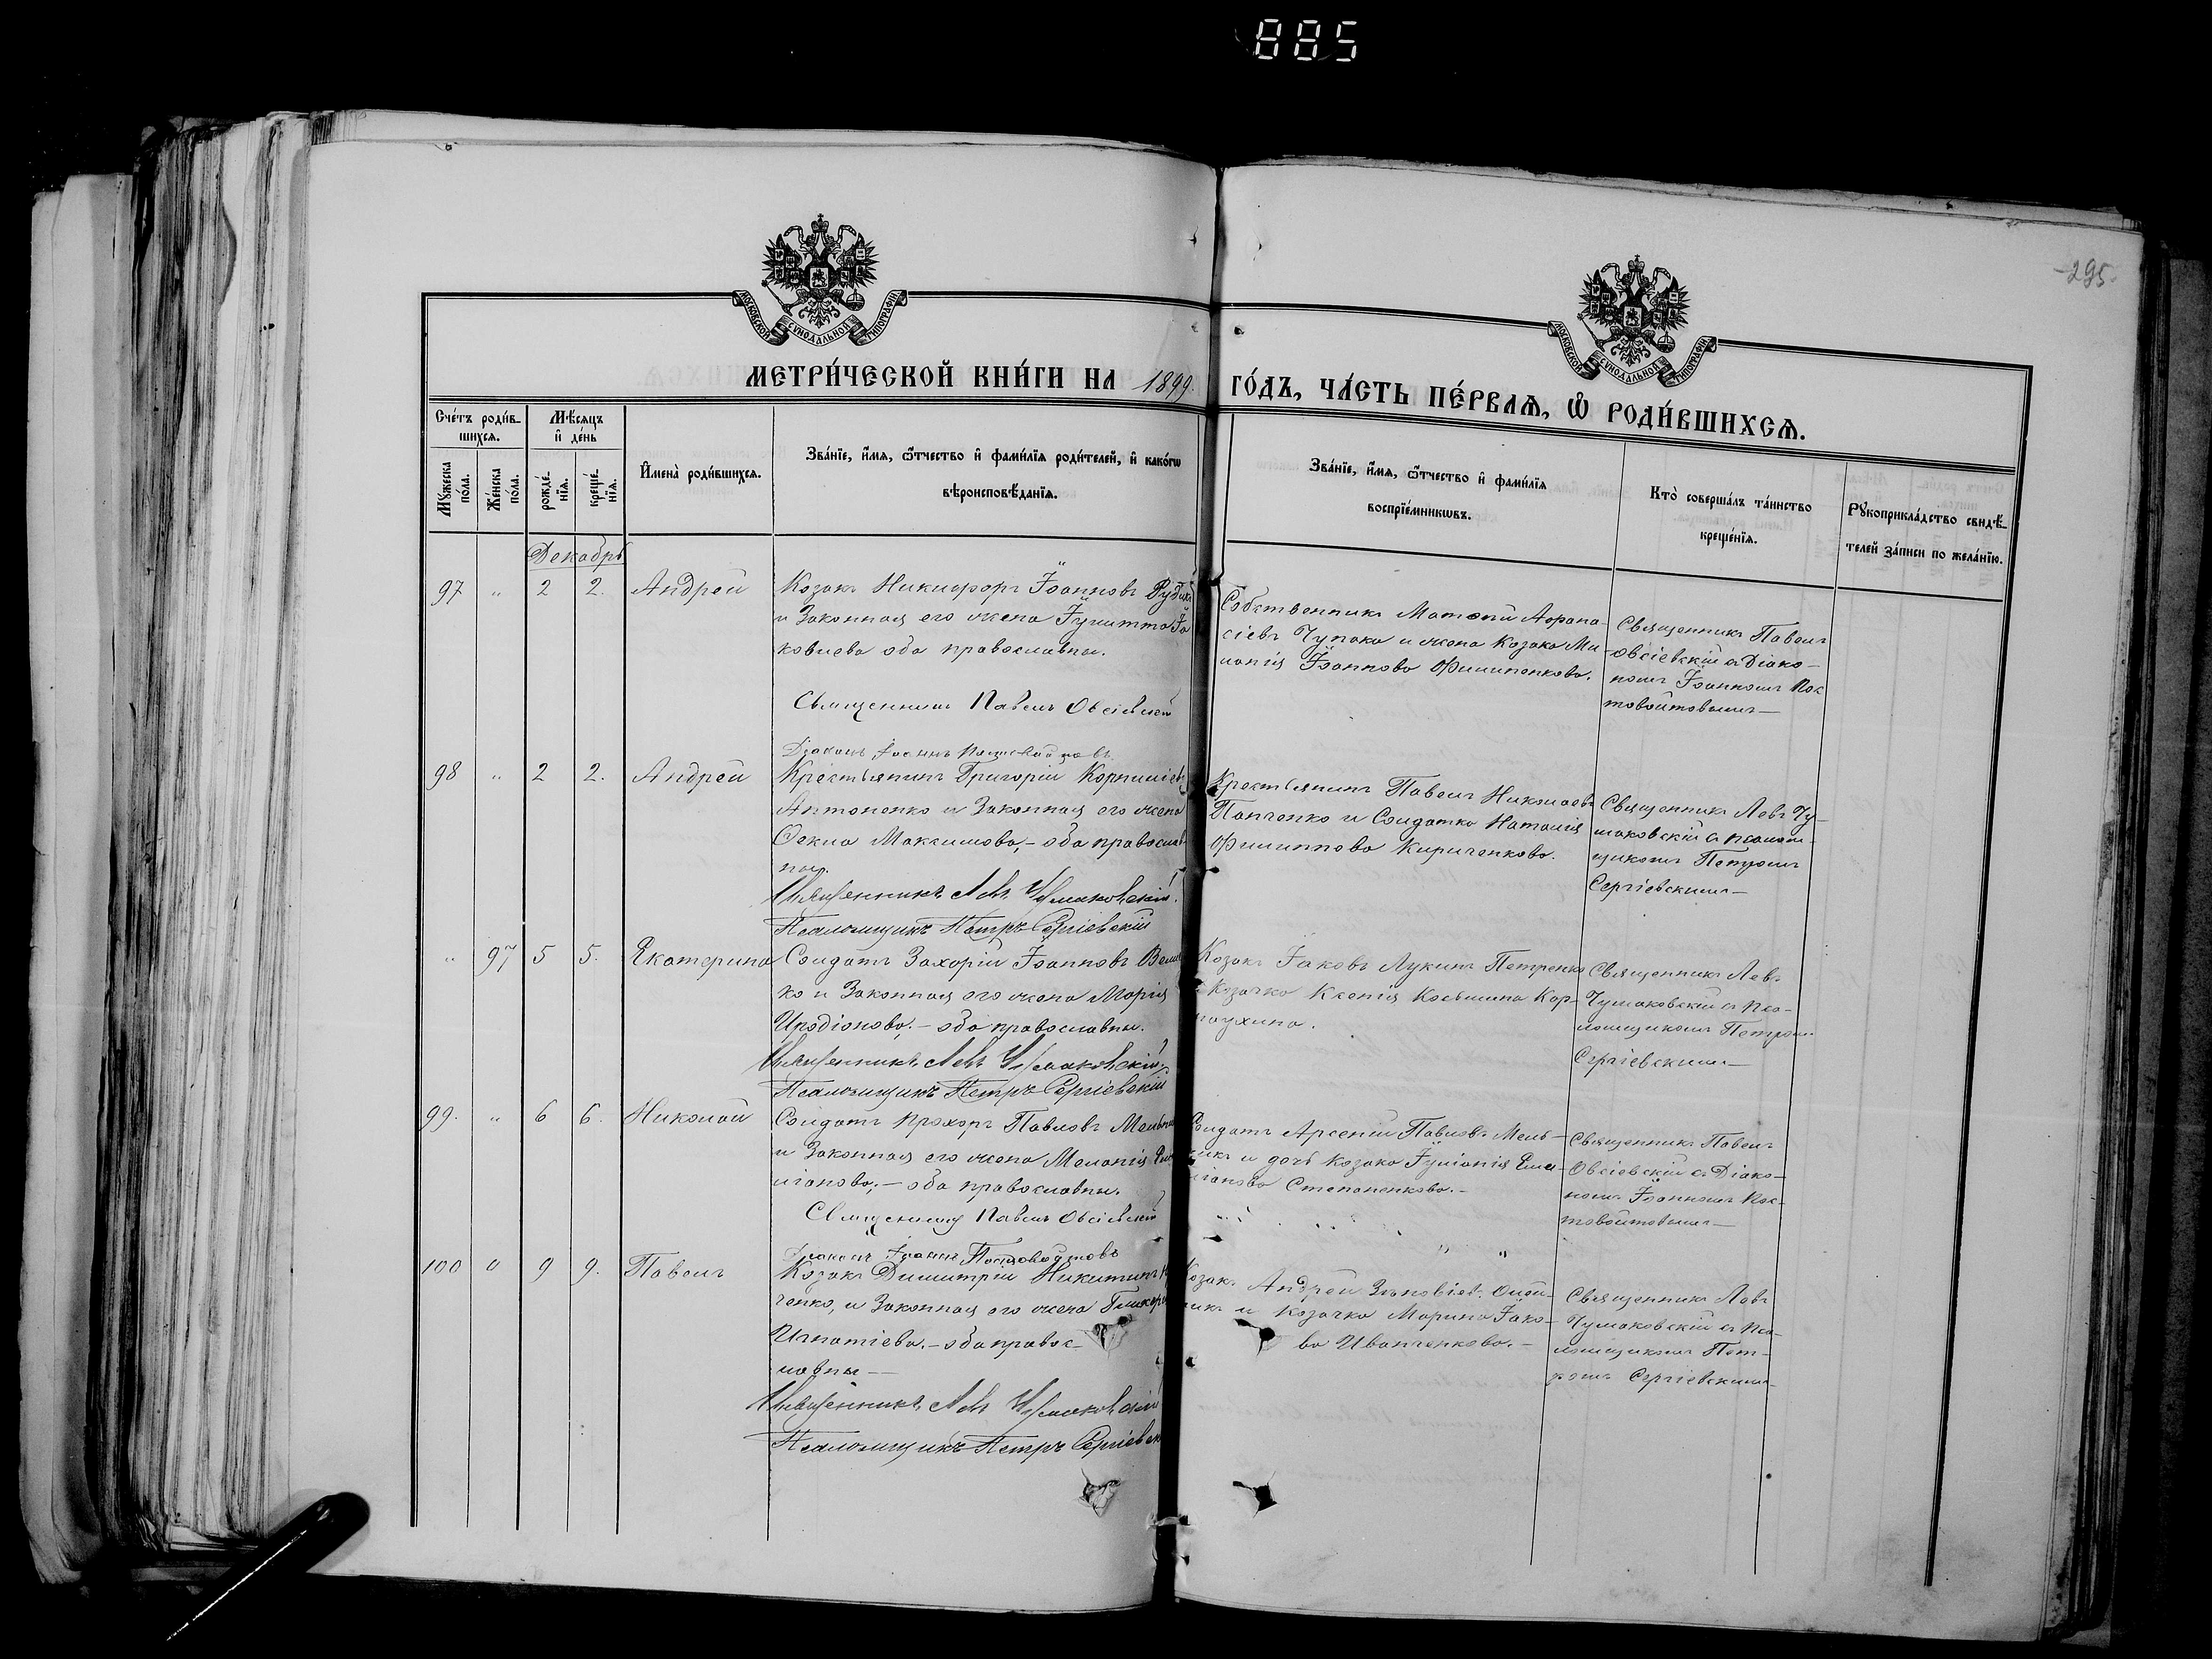 885
295
МОСКОВСКОЙ СѴНОДАЛЬНОЙ ТИПОГРАФІИ
МОСКОВСКОЙ СѴНОДАЛЬНОЙ ТИПОГРАФІИ
МЕТРИ́ЧЕСКОЙ КНИ́ГИ НА 1899. ГО́ДЪ, ЧА́СТЬ ПЕ́РВАѦ, Ѽ РОДИ́ВШИХСѦ.
Сче́тъ роди́в-
шихсѧ.
Мѣ́сяцъ
и҆ де́нь
Мꙋ́жеска
по́ла.
Же́нска
по́ла.
рожде́-
нїѧ.
креще́-
нїѧ.
И҆мена̀ роди́вшихсѧ.
Зва́нїе, и҆́мѧ, ѻ҆́тчество и҆ фами́лїѧ роди́телей, и҆ како́гѡ
вѣроисповѣ́данїѧ.
Зва́нїе, и҆́мѧ, ѻ҆́тчество и҆ фами́лїѧ
воспрїе́мникѡвъ.
Кто̀ соверша́лъ та́инство
креще́нїѧ.
Рꙋкоприкла́дство свидѣ́-
телей за́писи по жела́нїю.
Декабрь
97 " 2 2. Андрей
Козакъ Никифоръ Іоанновъ
и Законная его жена Іулитта Іа
ковлева оба православны.
Священникъ Павелъ Овсіевскій
Діаконъ Іоаннъ Постовойтовъ
Собственникъ Матѳей Аѳана-
сіевъ Чупака и жена Козака Ме-
ланія Іоаннова Филипенкова.
Священникъ Павелъ
Овсіевскій съ Діако-
номъ Іоанномъ Пос
товойтовымъ—
98 " 2 2. Андрей
Крестьянинъ Григорій Корниліевъ
Антоненко и Законная его жена
Ѳекла Максимова,- оба православ-
ны.
Священникъ Левъ Чумаковскій.
Псаломщикъ Петръ Сергіевскій
Крестьянинъ Павелъ Николаевъ
Панченко и Солдатка Наталія
Филиппова Кириченкова.
Священникъ Левъ Чу-
маковскій съ псалом-
щикомъ Петромъ
Сергіевскимъ—
" 97 5 5. Екатерина
Солдатъ Захарій Іоанновъ Вели
ко и Законная его жена Марія
Иродіонова.- оба православны.
Священникъ Левъ Чумаковскій
Псаломщикъ Петръ Сергіевскій
Козакъ Іаковъ Лукинъ Петренко
и Козачка Ксенія Косьмина Кар-
наухина.
Священникъ Левъ
Чумаковскій съ Пса-
ломщикомъ Петромъ
Сергіевскимъ—
99. " 6 6. Николай
Солдатъ Прохоръ Павловъ Мельник
и Законная его жена Меланія Еми
ліанова,- оба православны.
Священникъ Павелъ Овсіевскій
Діаконъ Іоаннъ Постовойтовъ
Солдатъ Арсеній Павловъ Мель-
никъ и дочь Козака Іуліанія Еми-
ліанова Степаненкова.-
Священникъ Павелъ
Овсіевскій съ Діако-
номъ Іоанномъ Пос-
товойтовымъ—
100 " 9 9. Павелъ
Козакъ Димитрій Никитинъ
ченко, и Законная его жена Гликері
Игнатіева.- оба правос-
лавны—
Священникъ Левъ Чумаковскій
Псаломщикъ Петръ Сергіевск
Козакъ Андрей Зиновіевъ Олей-
никъ и Козачка Марина Іако-
ва Иванченкова.-
Священникъ Левъ
Чумаковскій съ Пса-
ломщикомъ Пет-
ромъ Сергіевскимъ